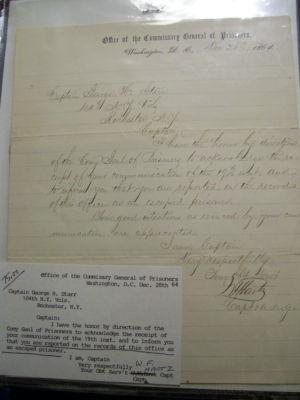 Office of the Commissary General of Prisoners,
Washington, D. C. Dec 28th 1864
Captain George H. Starr
104th N.Y. Vols
Rochester N.Y.
Captain,
I have the honor by direction
of the Comy Genl of Prisoners to acknowledge the re-
ceipt of your communication of the 19th inst. and
to inform you that you are reported on the records
of this office as an escaped prisoner.
Your good intentions as evinced by your com-
munication are appreciated
I am, Captain
Very respectfully
Your Obt Servt
Office of the Commissary General of Prisoners
Washington, D.C. Dec. 28th 64
Captain George H. Starr
104th N.Y. Vols.
Rochester, N.Y.
Captain:
I have the honor by direction of the
Comy Genl of Prisoners to acknowledge the receipt of
your communication of the 19th inst. and to inform
you that you are reported on the records of this office as
an escaped prisoner.
I am, Captain
Very respectfully
Your Obt Serv't
Capt